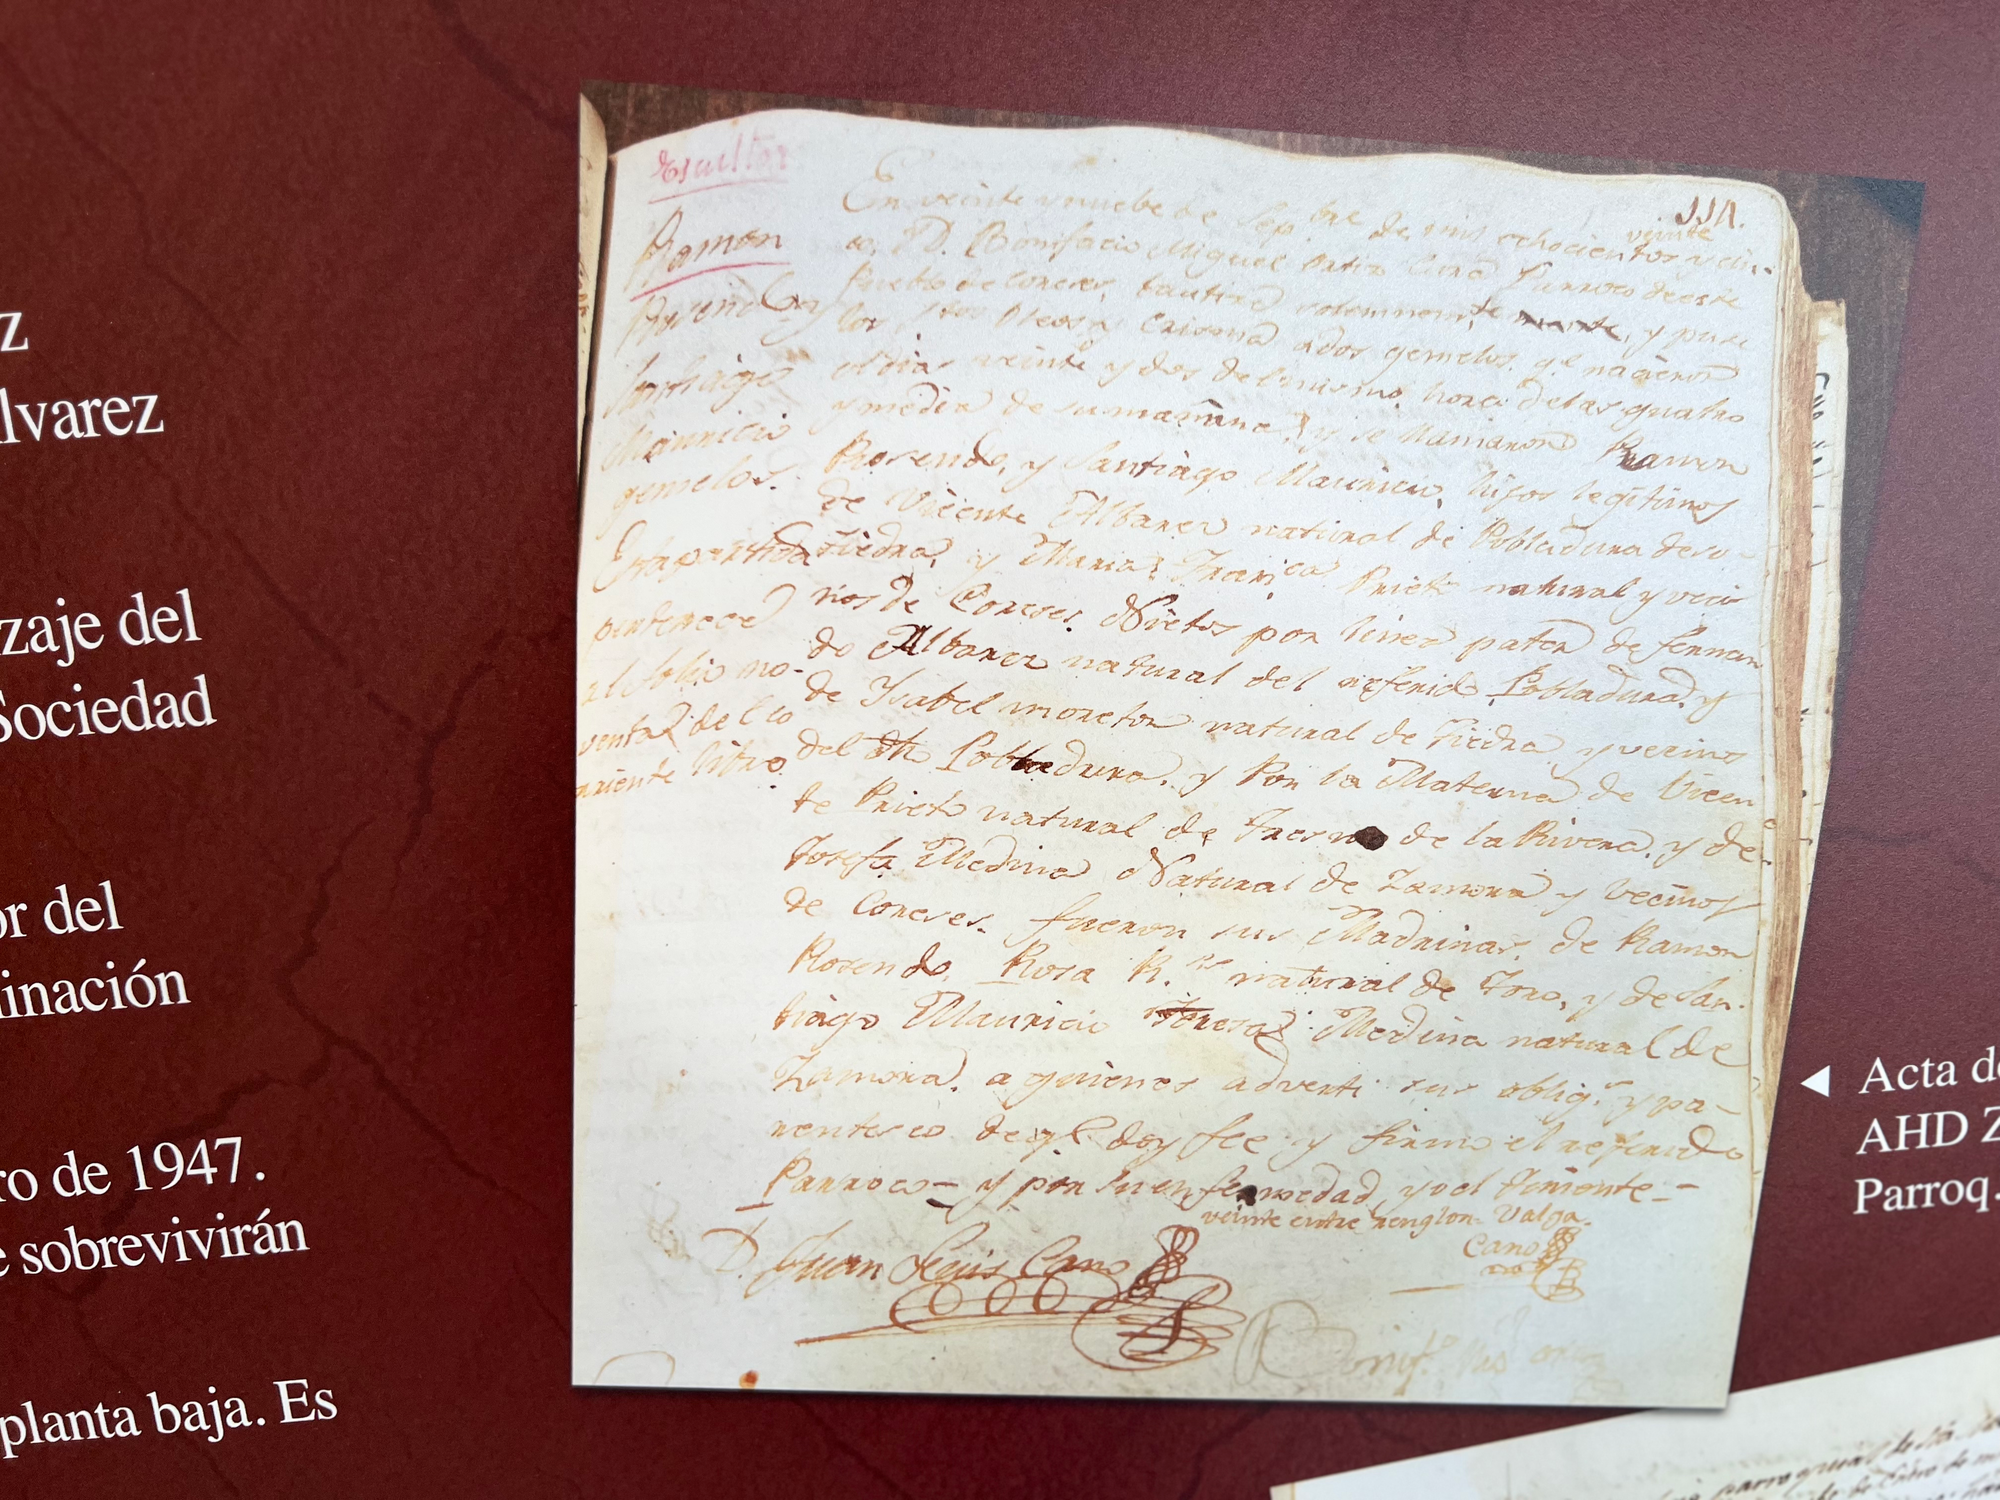 z
lvarez
zaje del
Sociedad
or del
inación
ro de 1947.
e sobrevivirán
planta baja. Es
Escultor
Ramon
Rosendo, y
Santiago
Mauricio
gemelos.
Esta partida
pertenece
al folio no-
venta del co
rriente libro
11
En veinte y nuebe de Sep.bre de mis ochocientos y cin-
veinte
co, D. Bonifacio Miguel Ortiz Cura Parroco de este
Pueblo de Coreses, bautizé solemnem.te y puse
los S.tos Oleos y Crisma a dos gemelos, q.e nacieron
el dia veinte y dos del mismo, hora de las quatro
y media de su mañana, y se llamaron Ramon
Rosendo, y Santiago Mauricio, hijos legitimos
de Vicente Albarez natural de Pobladura de so-
tiedra, y Maria Fran.ca Prieto natural y veci
nos de Coreses. Nietos por linea patera de Fernan
do Albarez natural del referido Pobladura, y
de Ysabel moreton natural de tiedra y vecinos
del dho Pobladura, y Por la Materna de Vicen
te Prieto natural de Fresno de la Rivera, y de
Josefa Medina Natural de Zamora y vecinos
de Coreses. fueron sus Madrinas, de Ramon
Rosendo, Rosa R.s natural de Toro, y de San-
tiago Mauricio Teresa Medina natural de
Zamora. a quienes adverti sus oblig.s y pa-
rentesco de q.e doy fee y firmo el referido
Parroco- y por su enfermedad, yo el Tiniente-
veinte entre renglon. Valga.
Cano
D. Juan Luis Cano
Bonif.o
◀ Acta de
AHD Z
Parroq.